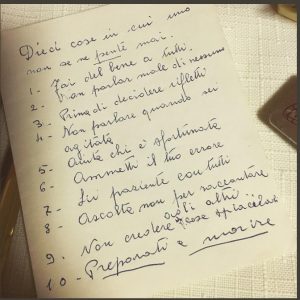 Dieci cose in cui uno
non se ne pente mai.
1 - Fai del bene a tutti.
2 - Non parlar male di nessuno
3 - Prima di decidere rifletti
4 - Non parlare quando sei
agitata
5 - Aiuta chi è sfortunata
6 - Ammetti il tuo errore
7 - Sii paziente con tutti
8 - Ascolta non per raccontare
agli altri...
9 - Non credere "cose spiacevoli
10 - Preparati a morire